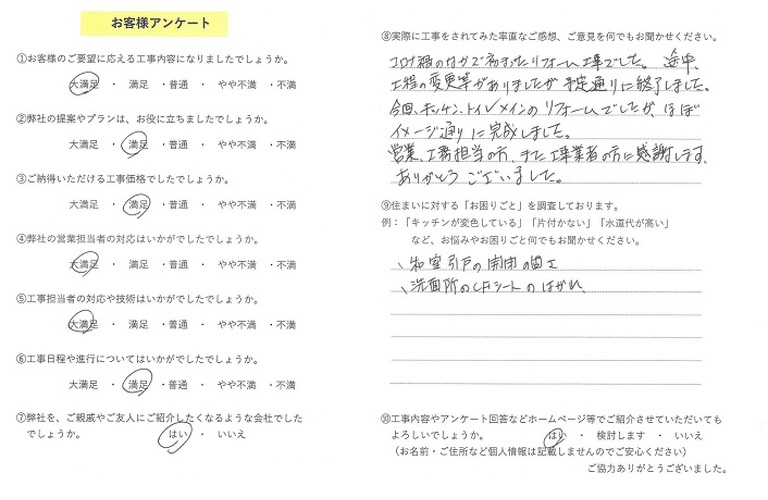 お客様アンケート
①お客様のご要望に応える工事内容になりましたでしょうか。
大満足 ・ 満足 ・普通 ・ やや不満 ・不満
②弊社の提案やプランは、お役に立ちましたでしょうか。
大満足 ・ 満足 ・普通 ・ やや不満 ・不満
③ご納得いただける工事価格でしたでしょうか。
大満足 ・ 満足 ・普通 ・ やや不満 ・不満
④弊社の営業担当者の対応はいかがでしたでしょうか。
大満足 ・ 満足 ・普通 ・ やや不満 ・不満
⑤工事担当者の対応や技術はいかがでしたでしょうか。
大満足 ・ 満足 ・普通 ・ やや不満 ・不満
⑥工事日程や進行についてはいかがでしたでしょうか。
大満足 ・ 満足 ・普通 ・ やや不満 ・不満
⑦弊社を、ご親戚やご友人にご紹介したくなるような会社でした
でしょうか。 はい ・ いいえ
⑧実際に工事をされてみた率直なご感想、ご意見を何でもお聞かせください。
コロナ禍のなかで始まったリフォーム工事でした。途中、
工程の変更等がありましたが予定通りに終了しました。
今回、キッチン、トイレメインのリフォームでしたが、ほぼ
イメージ通りに完成しました。
営業、工務担当の方、また工事業者の方に感謝します、
ありがとうございました。
⑨住まいに対する「お困りごと」を調査しております。
例：「キッチンが変色している」「片付かない」「水道代が高い」
など、お悩みやお困りごと何でもお聞かせください。
、和室引戸の開閉の
、洗面所のCFシートのはがれ、
⑩工事内容やアンケート回答などホームページ等でご紹介させていただいても
よろしいでしょうか。 はい ・ 検討します ・ いいえ
（お名前・ご住所など個人情報は記載しませんのでご安心ください）
ご協力ありがとうございました。